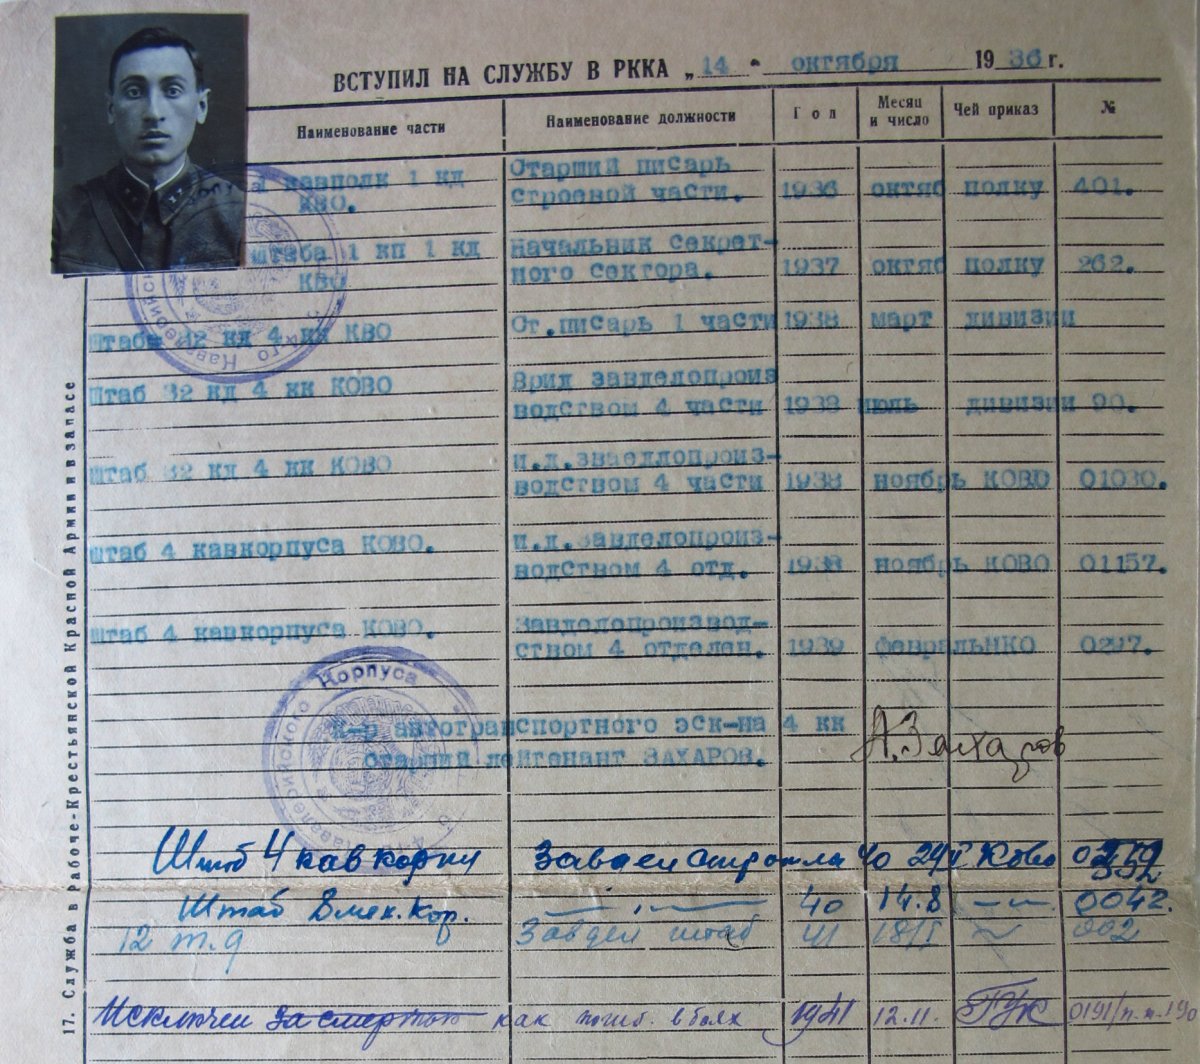 ВСТУПИЛ НА СЛУЖБУ В РККА „14 " октября 1936 г.
Наименование части Наименование должности Год Месяц и число Чей приказ №
кавполк 1 кд Старший писарь
КВО. строевой части. 1936 октяб полку 401.
штаба 1 кп 1 кд начальник секрет-
КВО ного сектора. 1937 октяб полку 262.
Штаба 32 кд 4 кк КВО Ст.писарь 1 части 1938 март дивизии
Штаб 32 кд 4 кк КОВО Врид завделопроиз
водством 4 части 1938 июль дивизии 90.
штаб 32 кд 4 кк КОВО
водством 4 части 1938 ноябрь КОВО 01030.
штаб 4 кавкорпуса КОВО. и.д.завделопроиз-
водством 4 отд. 1938 ноябрь КОВО 01157.
штаб 4 кавкорпуса КОВО. Завделопроизвод-
ством 4 отделен. 1939 0297.
Корпуса
к-р автотранспортного эск-на 4 кк
старший лейтенант ЗАХАРОВ. А.Захаров
Штаб 4 кав 40 Ково
Штаб 8 мех.кор. — " — 40 14.8 — " — 0042.
12 т.д Завдел штаб 41 002
Исключен за смертью как погиб. в боях 1941 12.11. ГУК
17. Служба в Рабоче-Крестьянской Красной Армии и в запасе